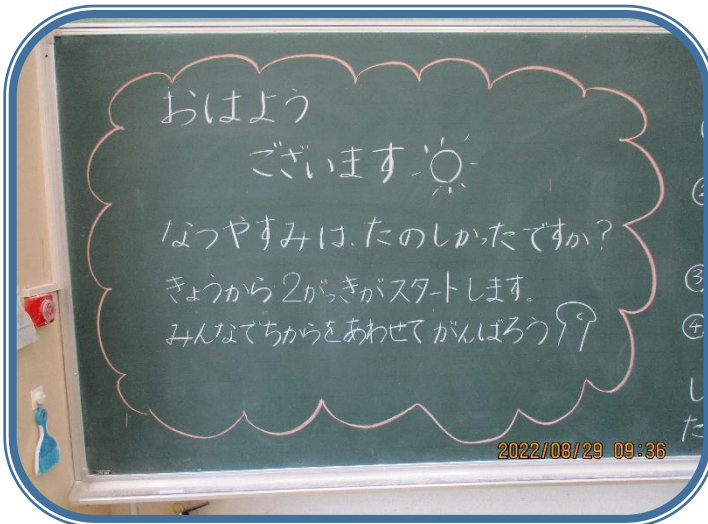 おはよう
ございます
なつやすみは、たのしかったですか?
きょうから2がっきがスタートします。
みんなでちからをあわせてがんばろう
②
③
④
し
た
2022/08/29 09:36